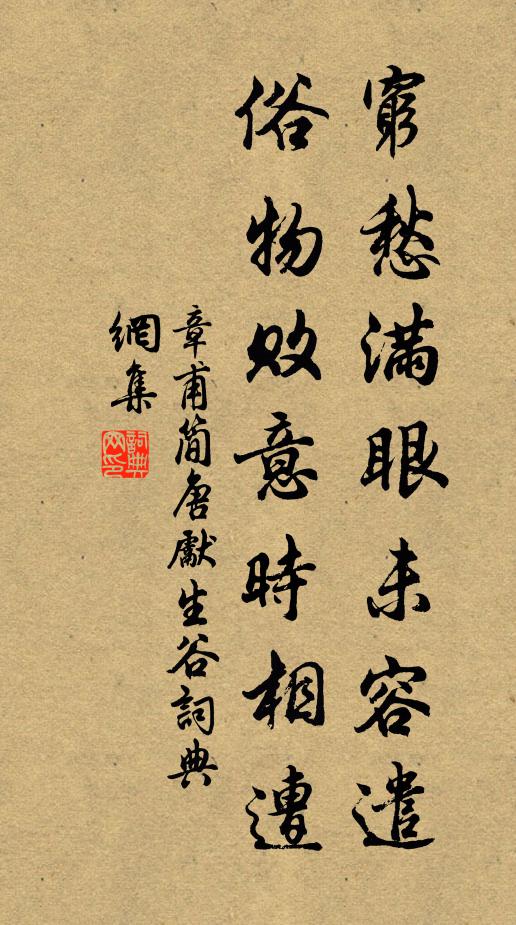 窮愁滿眼未容遣
俗物敗意時相遭
章甫簡唐獻生谷詞典
網集
詞典
网印